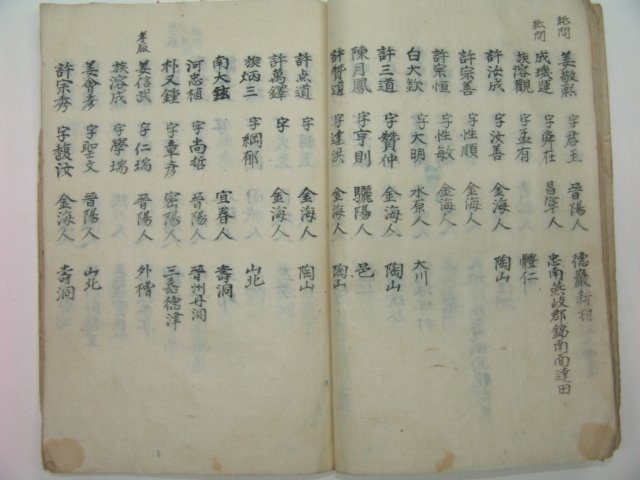 誌問
姜敬熙 字君玉 晉陽人 德巖新村
誌問
成璣運 字舜在 昌寧人 忠南燕岐郡錦南面達田
族溶觀 字孟有 體仁
許汝成 字汝善 金海人 陶山
許宗善 字性順 金海人
許宗恒 字性敏 金海人
白大欽 字大明 水原人 大川
許三道 字贊仲 金海人 陶山
陳月鳳 字亨則 驪陽人 邑
許贊道 字達洪 金海人 陶山
許点道 字 金海人 陶山
許萬鐸 字 金海人
族炳三 字綱郁 山北
南大鉉 宜春人 壽洞
河忠植 字尚哲 晉陽人 晉州丹洞
朴又鍾 字章彦 密陽人 三嘉德津
孝服
姜信武 字仁瑞 晉陽人 外稽
族溶成 字學瑞
姜會彦 字聖文 晉陽人 山北
許宗秀 字馥汝 金海人 壽洞